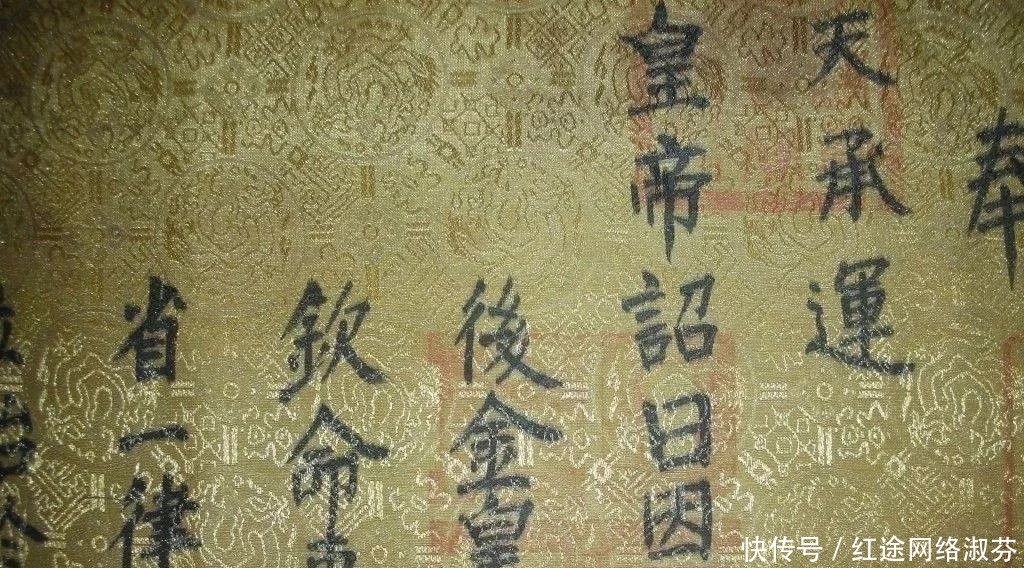 奉
天承運
皇帝詔曰因
後金皇
欽命
省一律
快传号 / 红途网络淑芬